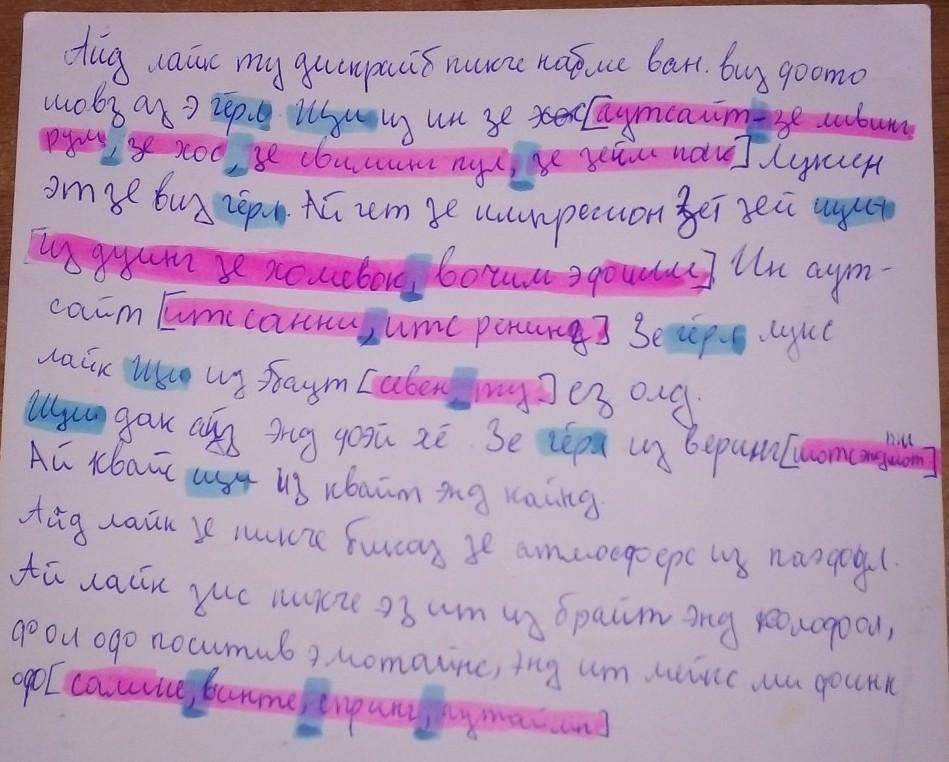 Айд лайк ту дискрайб пикче набме ван. виз фото
шовз аз э гёрл. Щи из ин зе хос[аутсайт-зе ливинг
рум, зе хос, зе свиминг пул, зе зейм пак] Лукин
эт зе виз гёрл. Ай гет зе импресион зет зей щи
[из дуинг зе хомевок, вочим эфоилм] Ин аут-
сайт [итс санни, итс ренинг] Зе гёрл лукс
лайк Щи из эбаут [севен, ту] ез олд.
Щи дак айз энд фэй хё. Зе гёрл из веринг[шотс энд шот]
Ай квайс щи из квайт энд кайнд.
Айд лайк зе пикче биказ зе атмосфере из паэфоул.
Ай лайк зис пикче эз ит из брайт энд колофол,
фол офо поситив эмотайнс, энд ит мейкс ми финк
офо[самме, винте, спринг, лутаймп]